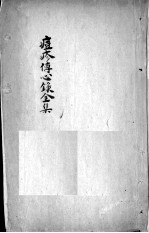 痘疹傳心錄全集